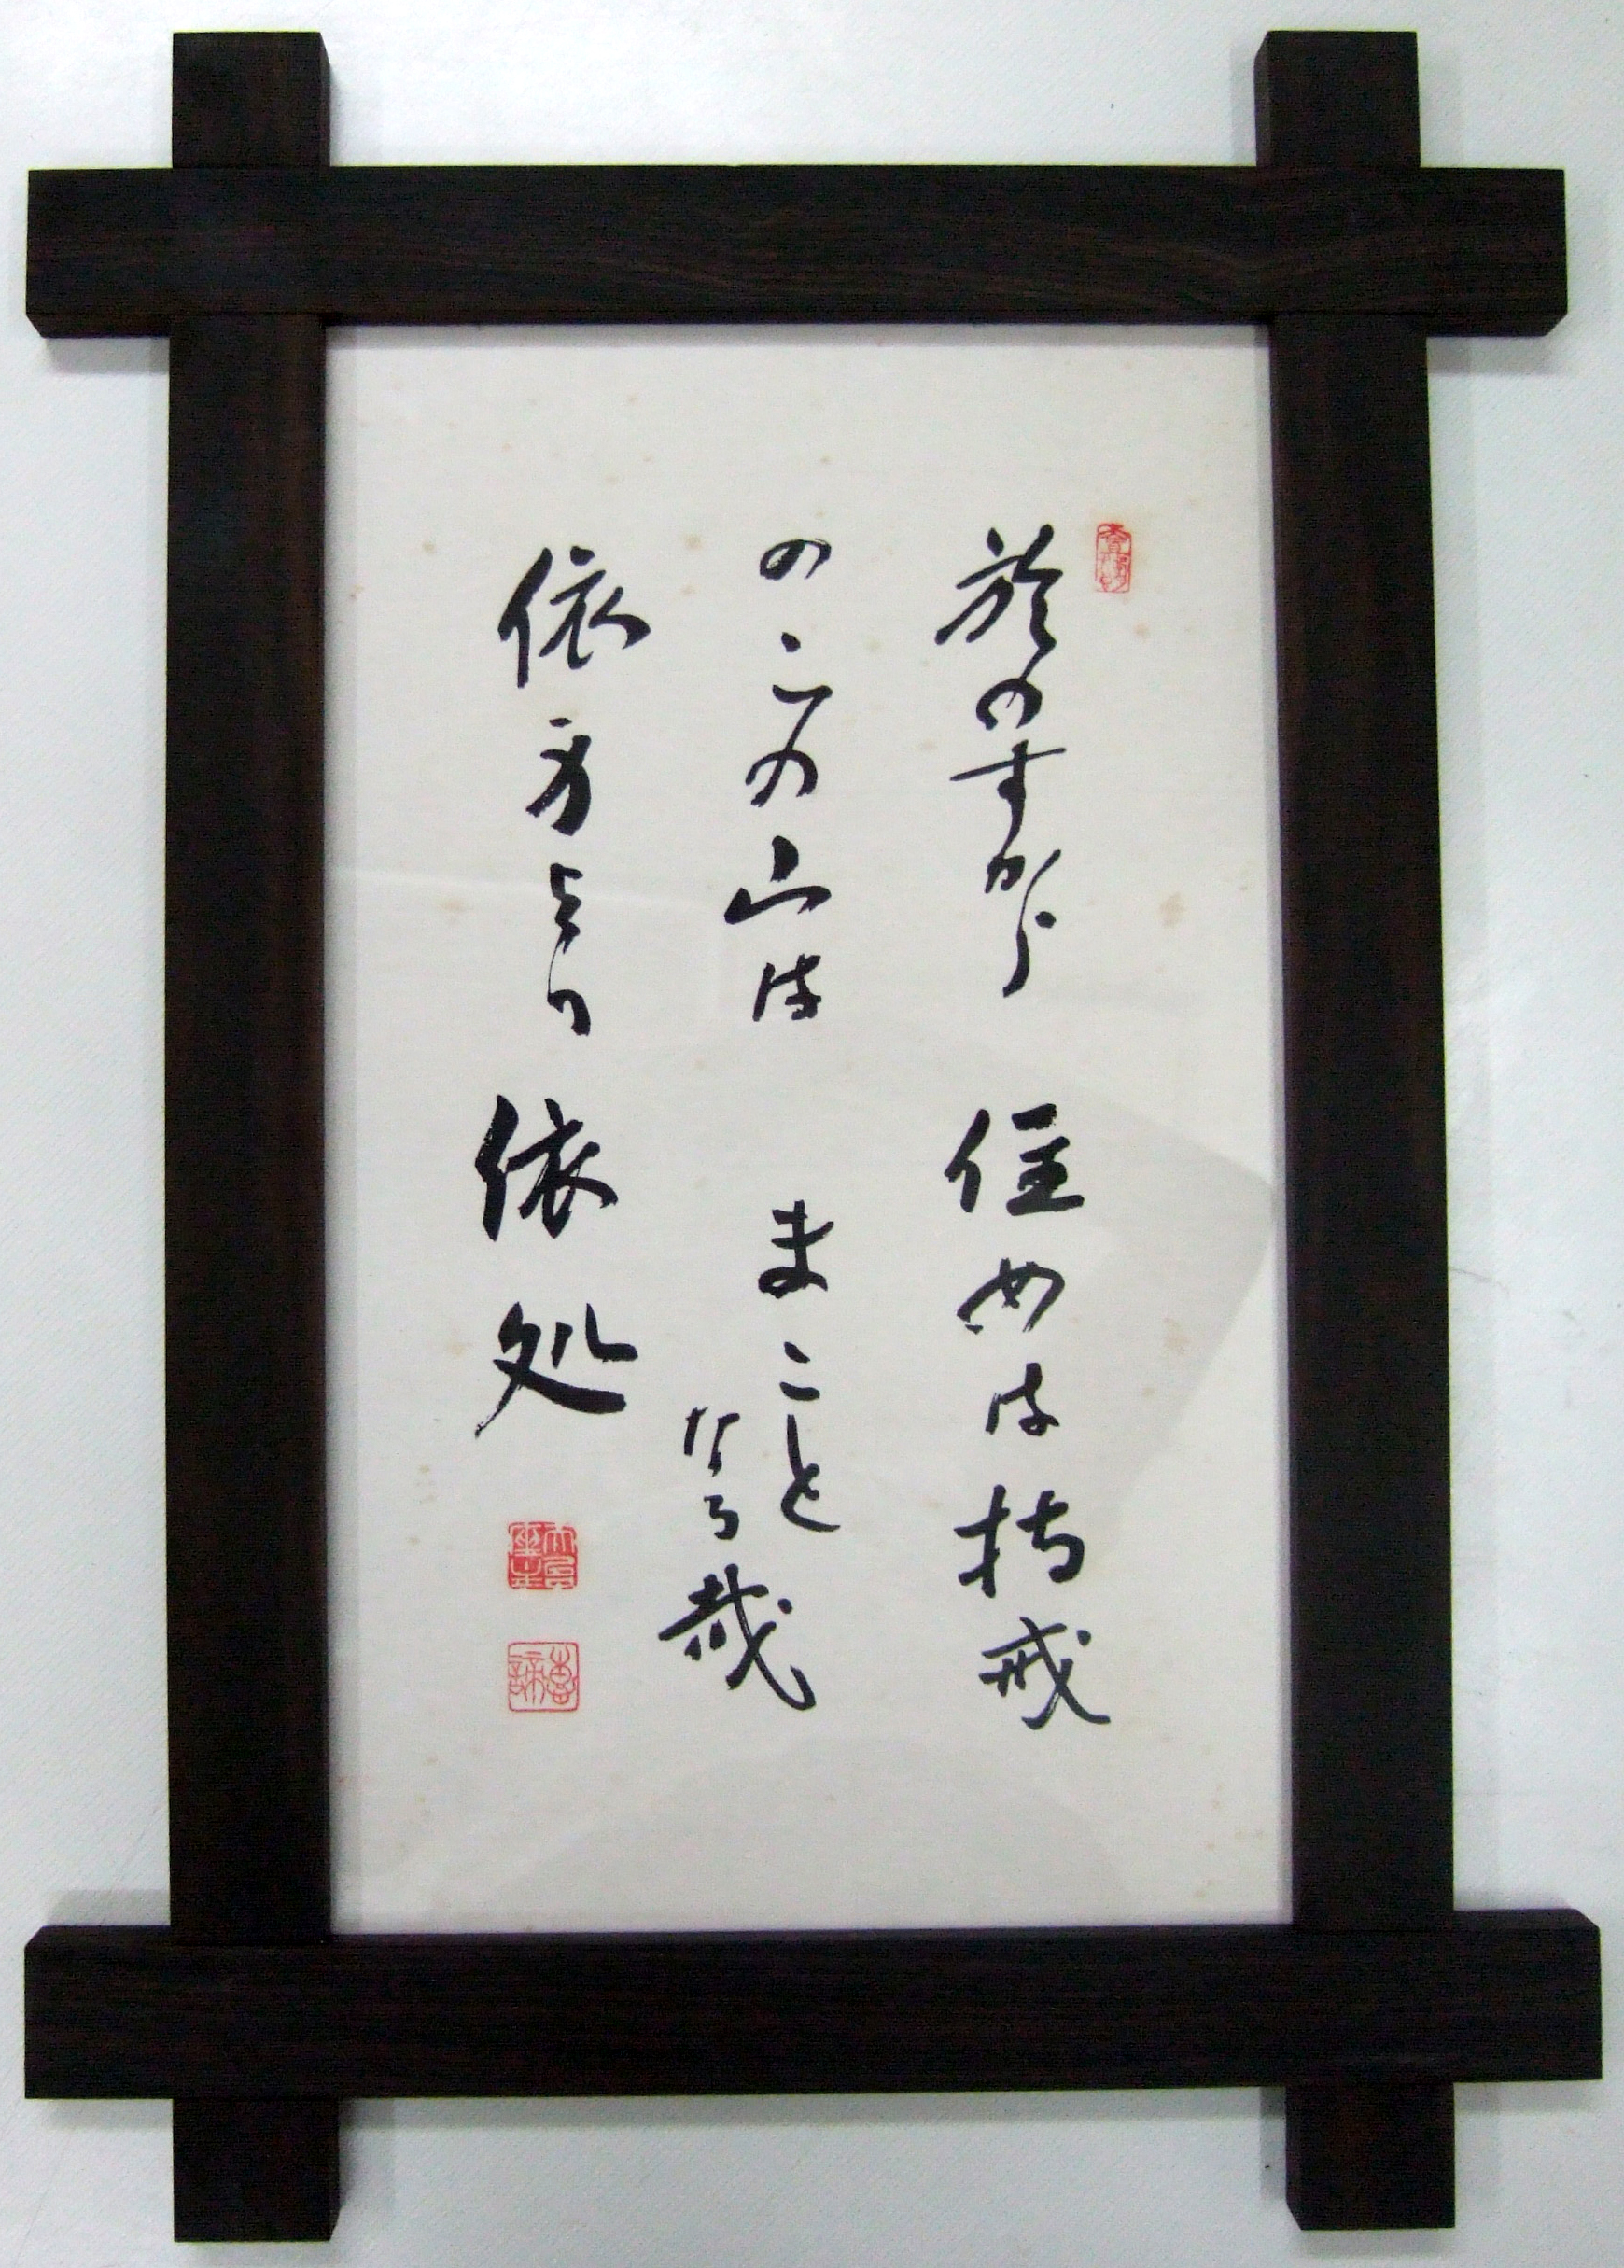 於のすから 住めは持戒
のこの山は まこと
なる哉
依身より 依処